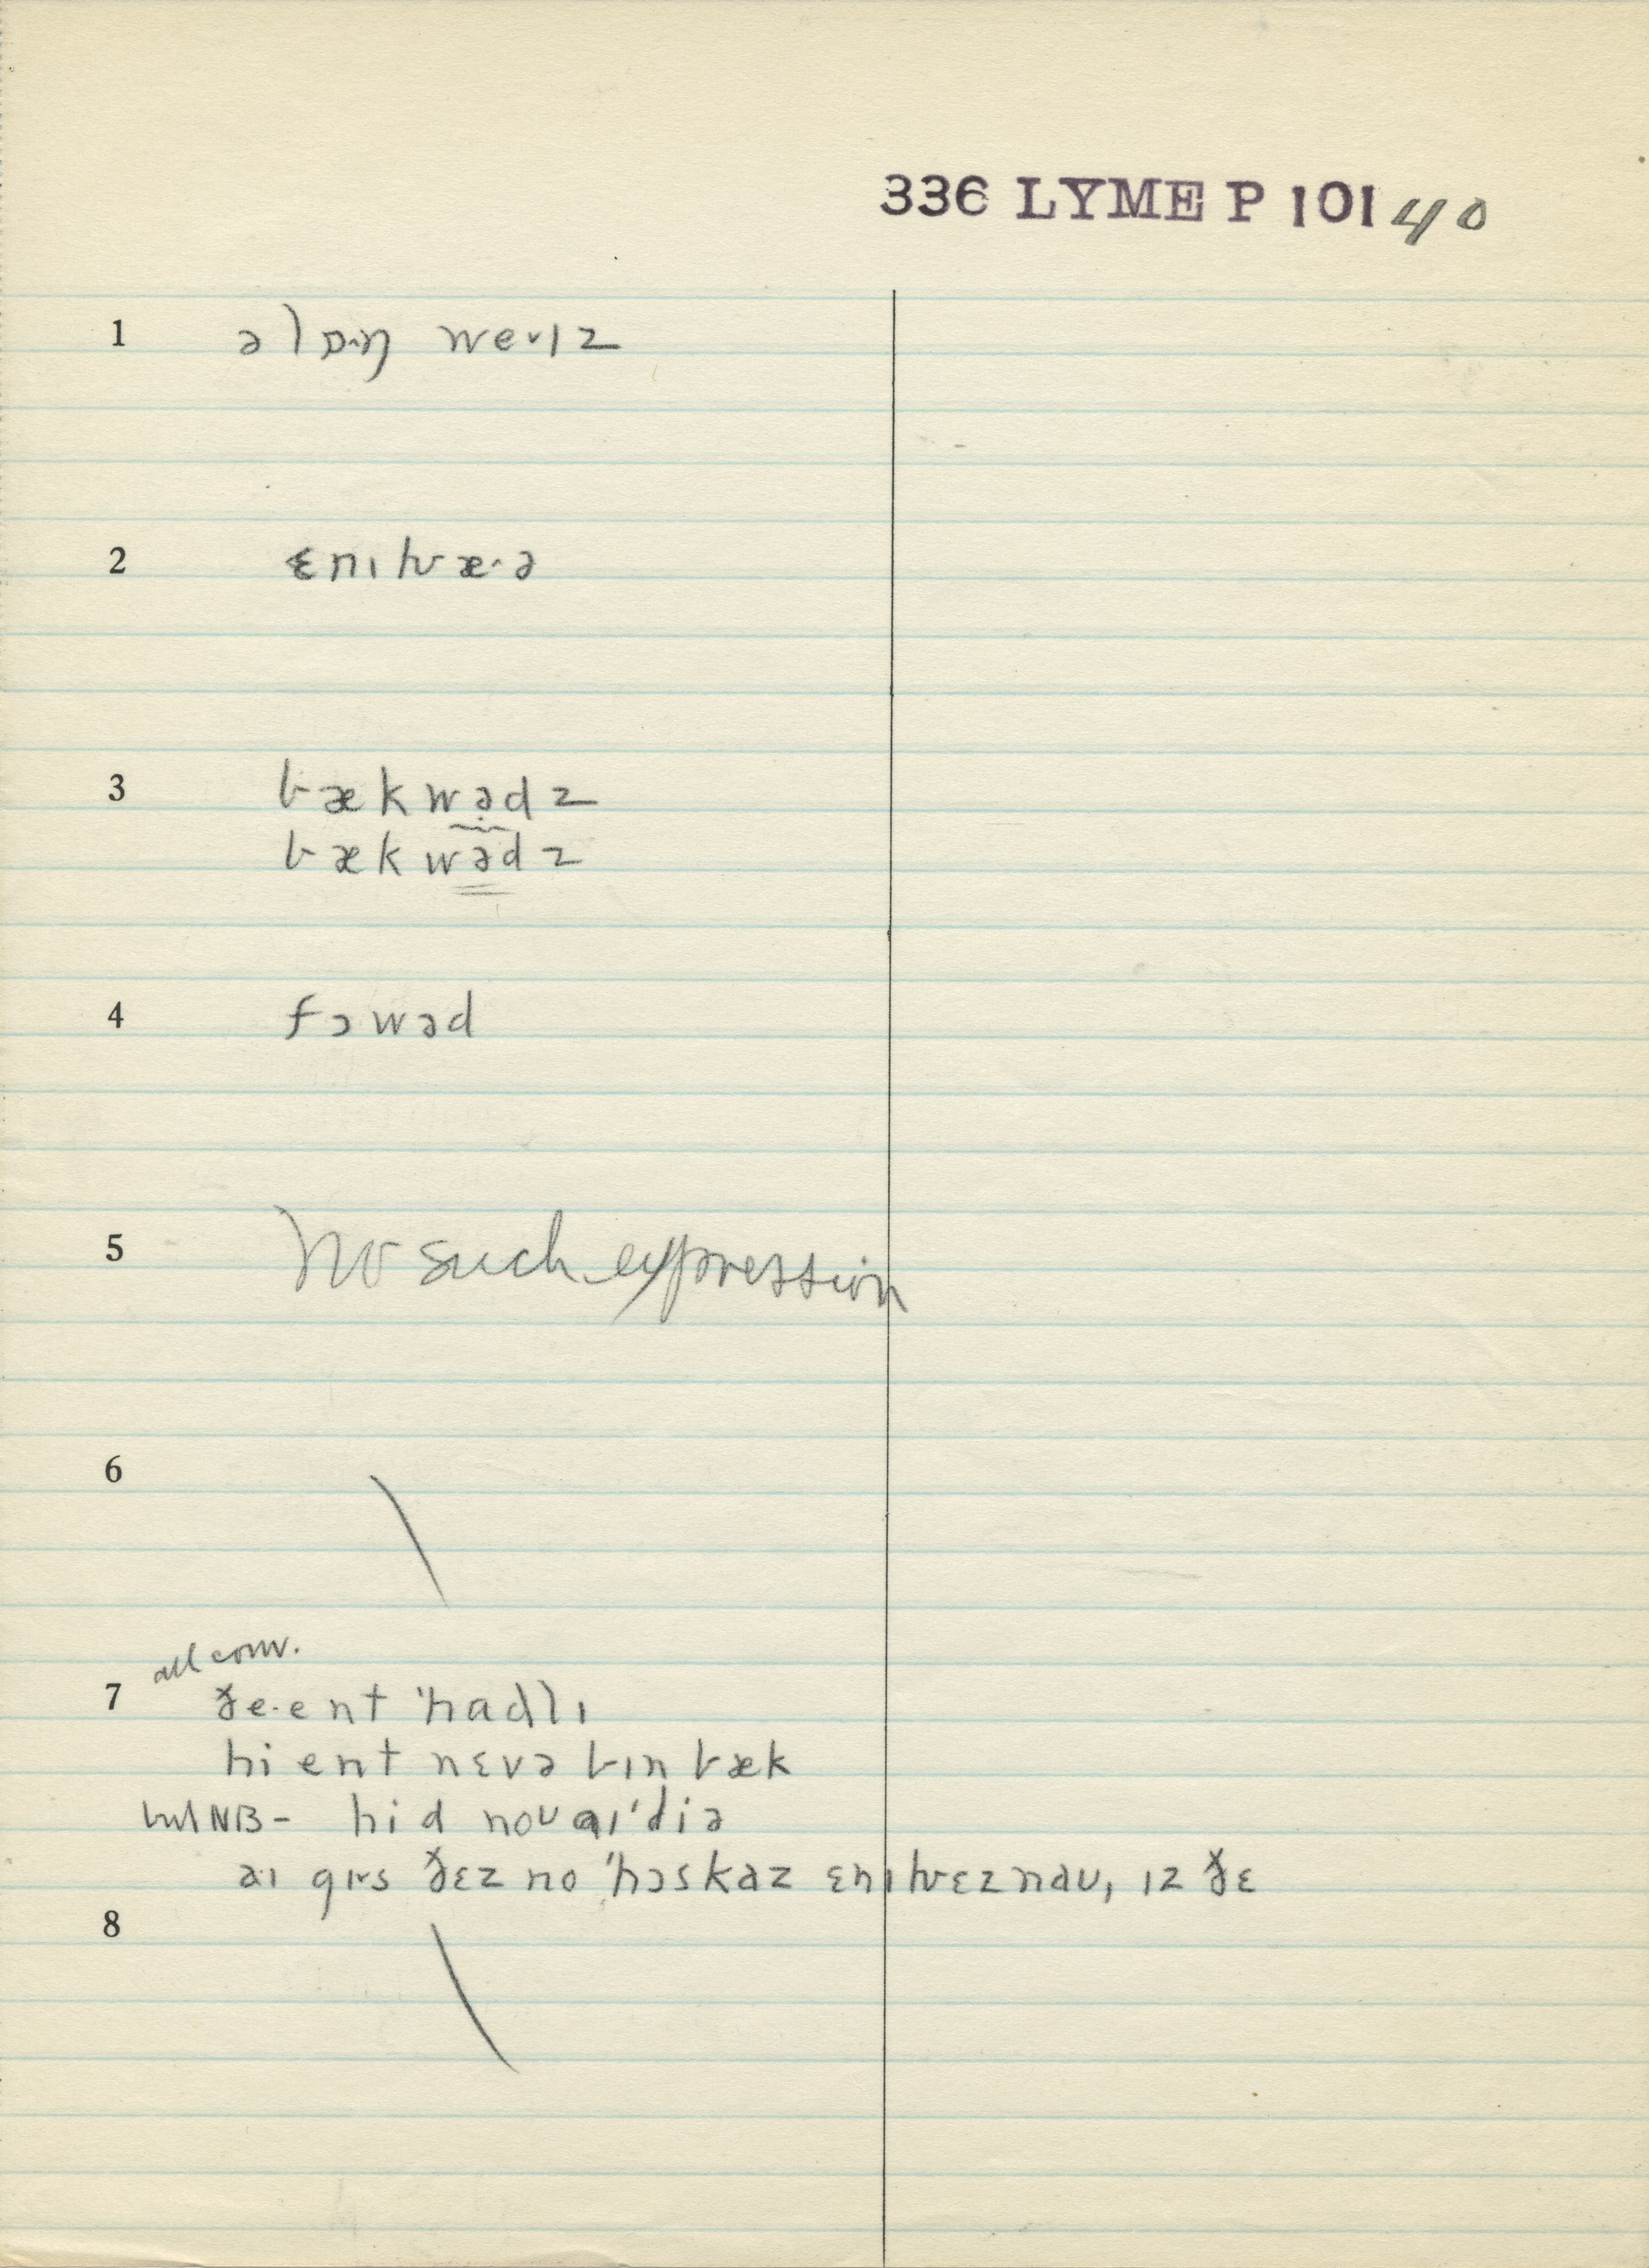 336 LYME P 101 40
1 əlɒ·ŋ we·ɪz
2 ɛnɪhwæ·ə
3 bækwə̣dz
bækwədz
4 fɔwəd
5 No such expression
6
all conv.
7 ðe·ent 'hadlɪ
hi ent nɛvə bɪn bæk
but NB - hid noʊ aɪ'diə
aɪ gɪs ðɛz no 'hɔskaz ɛnɪhwɛz naʊ, ɪz ðɛ
8